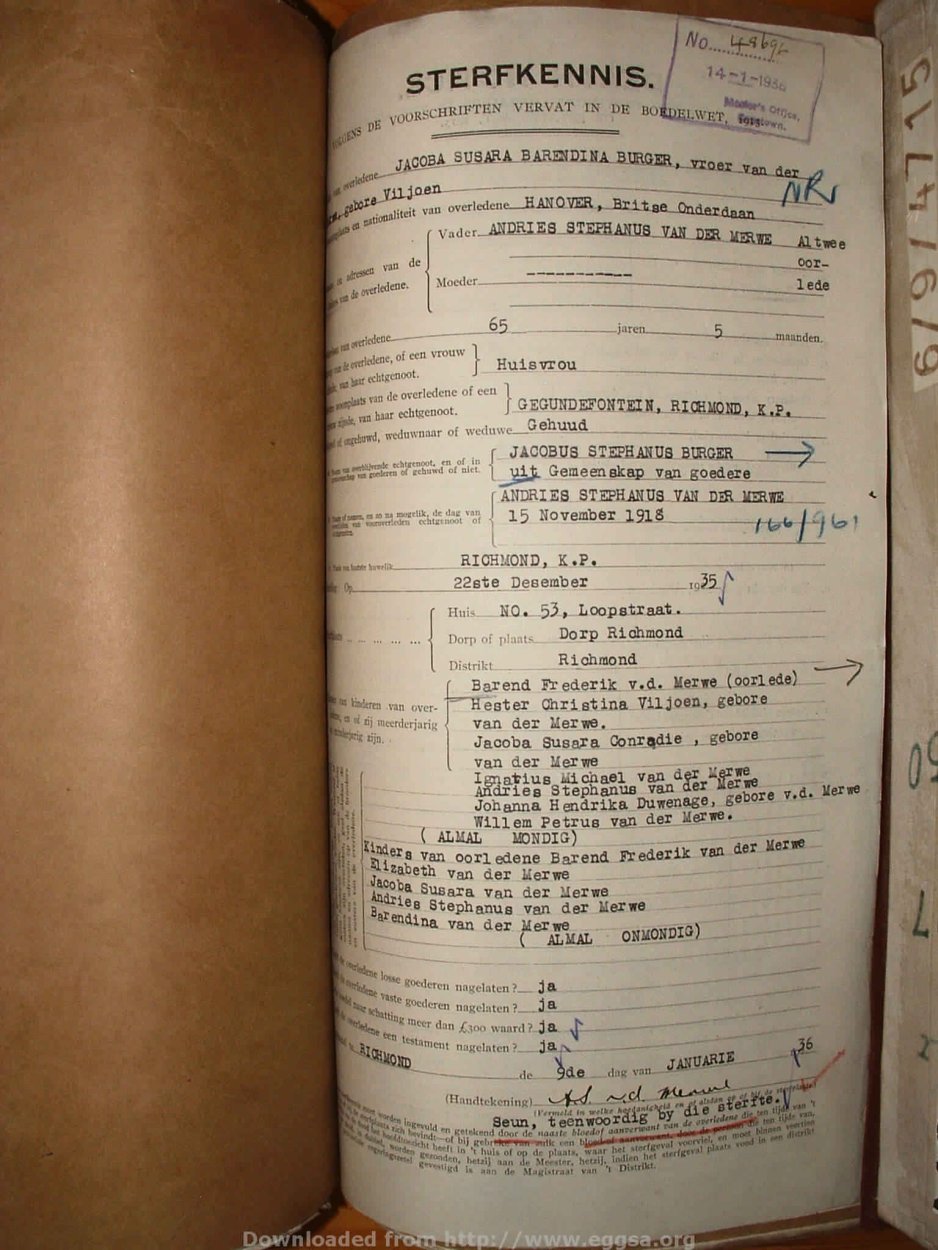 No. 48696
14-1-1936
Master's Office,
STERFKENNIS.
VOLGENS DE VOORSCHRIFTEN VERVAT IN DE BOEDELWET, 1913.
overledene JACOBA SUSARA BARENDINA BURGER, vroer van der
NR
gebore Viljoen
en nationaliteit van overledene HANOVER, Britse Onderdaan
Vader ANDRIES STEPHANUS VAN DER MERWE Altwee
oor-
en adressen van de
Moeder ------------ lede
van de overledene.
van overledene 65 jaren 5 maanden.
van de overledene, of een vrouw
Huisvrou
van haar echtgenoot.
woonplaats van de overledene of een
GEGUNDEFONTEIN, RICHMOND, K.P.
zijnde, van haar echtgenoot.
of ongehuwd, weduwnaar of weduwe Gehuud
JACOBUS STEPHANUS BURGER
Naam van overblijvende echtgenoot, en of in
gemeenschap van goederen of gehuwd of niet.
uit Gemeenskap van goedere
ANDRIES STEPHANUS VAN DER MERWE
en zo na mogelik, de dag van
15 November 1918
van vooroverleden echtgenoot of
166/961
Plaats van laatste huwelik RICHMOND, K.P.
Op 22ste Desember 1935
Huis NO. 53, Loopstraat.
Dorp of plaats Dorp Richmond
Distrikt Richmond
Barend Frederik v.d. Merwe (oorlede)
van kinderen van over-
Hester Christina Viljoen, gebore
en of zij meerderjarig
van der Merwe.
minderjarig zijn.
Jacoba Susara Conradie , gebore
van der Merwe
Ignatius Michael van der Merwe
Andries Stephanus van der Merwe
Johanna Hendrika Duwenage, gebore v.d. Merwe
Willem Petrus van der Merwe.
( ALMAL MONDIG)
Kinders van oorledene Barend Frederik van der Merwe
Elizabeth van der Merwe
Jacoba Susara van der Merwe
Andries Stephanus van der Merwe
Barendina van der Merwe
( ALMAL ONMONDIG)
de overledene losse goederen nagelaten? ja
de overledene vaste goederen nagelaten? ja
naar schatting meer dan £300 waard? ja
de overledene een testament nagelaten? ja
RICHMOND
de 9de dag van JANUARIE 36
(Handtekening) A.S. v.d. Merwe
(Vermeld in welke hoedanigheid en of alsdan op of bij de sterfplaats)
Seun, teenwoordig by die sterfte.
moet worden ingevuld en getekend door de naaste bloedof aanverwant van de overledene die ten tijde van 't
zich bevindt—of bij gebreke van zulk een bloed of aanverwant, door de persoon die ten tijde van,
hoofdtoezicht heeft in 't huis of op de plaats, waar het sterfgeval voorviel, en moet binnen veertien
worden gezonden, hetzij aan de Meester, hetzij, indien het sterfgeval plaats vond in een distrikt
gevestigd is aan de Magistraat van 't Distrikt.
Downloaded from http://www.eggsa.org